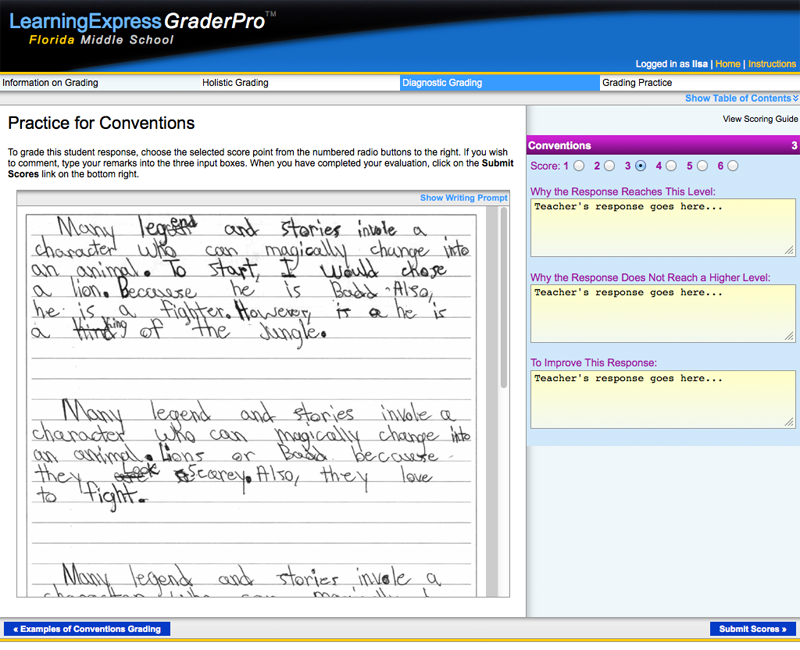 LearningExpress GraderPro™
Florida Middle School
Logged in as Ilsa | Home | Instructions
Information on Grading
Holistic Grading
Diagnostic Grading
Grading Practice
Show Table of Contents
Practice for Conventions
To grade this student response, choose the selected score point from the numbered radio buttons to the right. If you wish
to comment, type your remarks into the three input boxes. When you have completed your evaluation, click on the Submit
Scores link on the bottom right.
Show Writing Prompt
Many legend and stories invole a
character who can magically change into
an animal. To start, I would chose
a lion. Becauuse he is Badd. Also,
he is a fighter. However, is a he is
a king of the jungle.
Many legend and stories invole a
character who can magically change into
an animal. Lions or Badd becauuse
they look scarey. Also, they love
to fight.
Many legend and stories invole a
View Scoring Guide
Conventions 3
Score: 1 2 3 4 5 6
Why the Response Reaches This Level:
Teacher's response goes here...
Why the Response Does Not Reach a Higher Level:
Teacher's response goes here...
To Improve This Response:
Teacher's response goes here...
« Examples of Conventions Grading
Submit Scores »